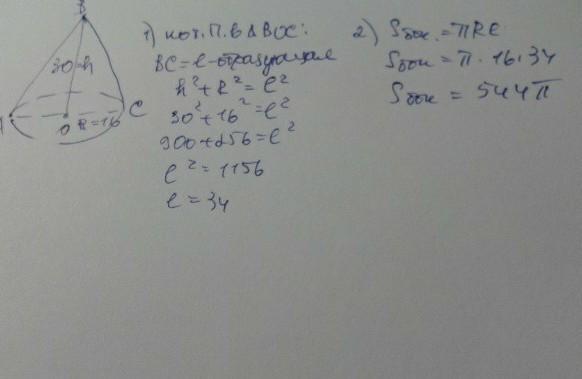 B
30=h
A
O R=16
C
1) по т. П. в ΔBOC:
BC=l-образующая
h²+R²=l²
30²+16²=l²
900+256=l²
l²=1156
l=34
2) Sбок.=πRl
Sбок=π·16·34
Sбок=544π